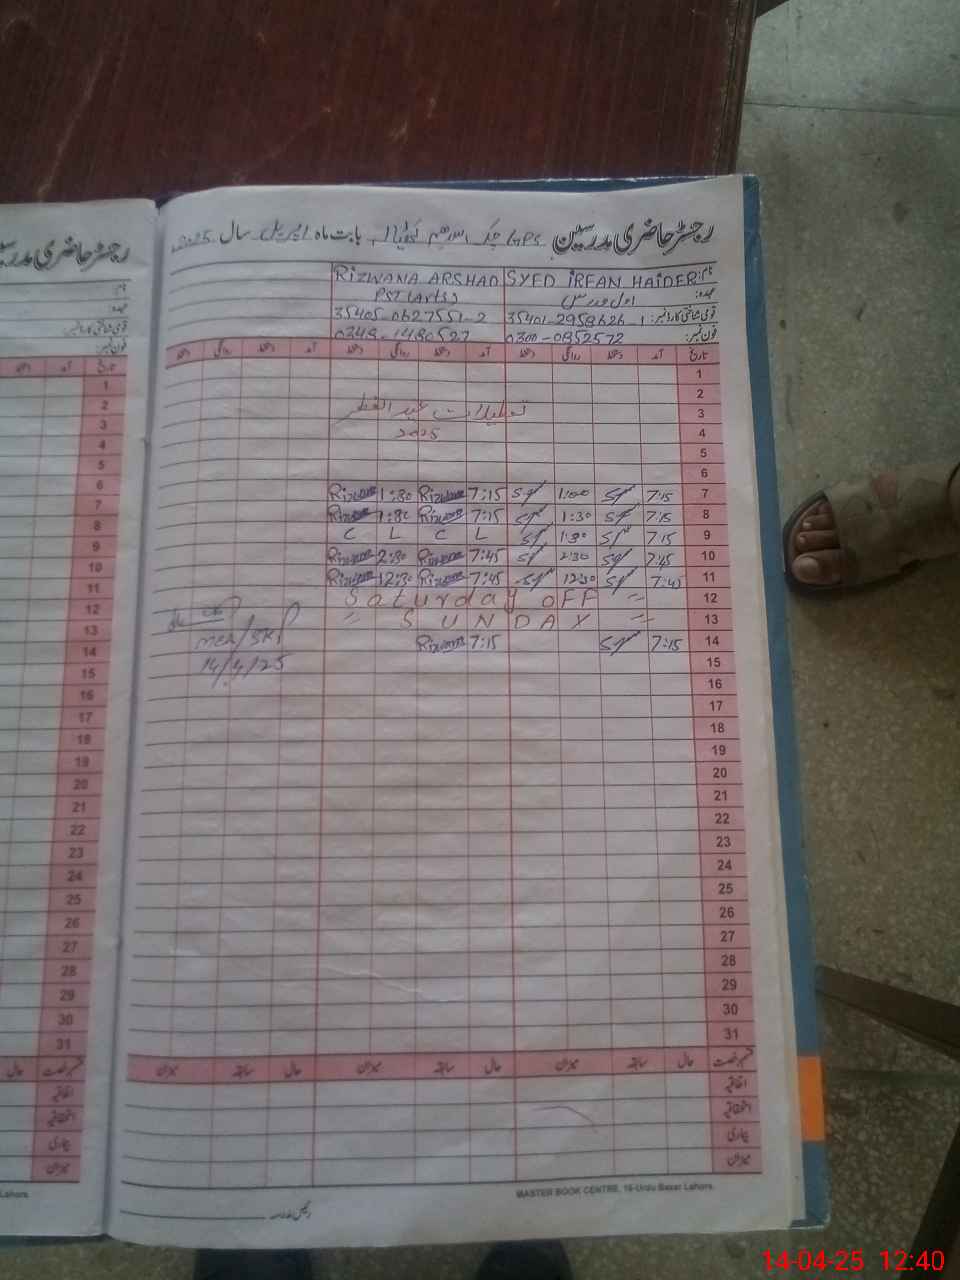 رجسٹر حاضری مدرسین GPS چک بابت ماہ اپریل سال 2025
نام: SYED IRFAN HAIDER RIZWANA ARSHAD
عہدہ: اول مدرس PST (Arts)
قومی شناختی کارڈ نمبر: 35401-2958626-1 35405-0627551-2
فون نمبر: 0300-0852572 0348-1480527
تاریخ آمد دستخط روانگی دستخط آمد دستخط روانگی دستخط آمد دستخط روانگی دستخط
1
2
3 تعطیلات عید الفطر
4 2025
5
6
7 7:15 1:00 7:15 Rizwana 1:30 Rizwana
8 7:15 1:30 7:15 Rizwana 1:30 Rizwana
9 7:15 1:30 L C L C
10 7:45 2:30 7:45 Rizwana 2:30 Rizwana
11 7:45 12:30 7:45 Rizwana 12:30 Rizwana
12 Saturday OFF
13 SUNDAY
14 7:15 7:15 Rizwana
14/4/25
15
16
17
18
19
20
21
22
23
24
25
26
27
28
29
30
31
قسم رخصت حال سابقہ میزان حال سابقہ میزان حال سابقہ میزان
اتفاقیہ
استحقاقیہ
بیماری
میزان
MASTER BOOK CENTRE, 16-Urdu Bazar Lahore.
رئیس مدرسہ
رجسٹر حاضری مدرسین
نام:
عہدہ:
قومی شناختی کارڈ نمبر:
فون نمبر:
تاریخ آمد دستخط
1
2
3
4
5
6
7
8
9
10
11
12
13
14
15
16
17
18
19
20
21
22
23
24
25
26
27
28
29
30
31
قسم رخصت حال
اتفاقیہ
استحقاقیہ
بیماری
میزان
Lahore.
14-04-25 12:40